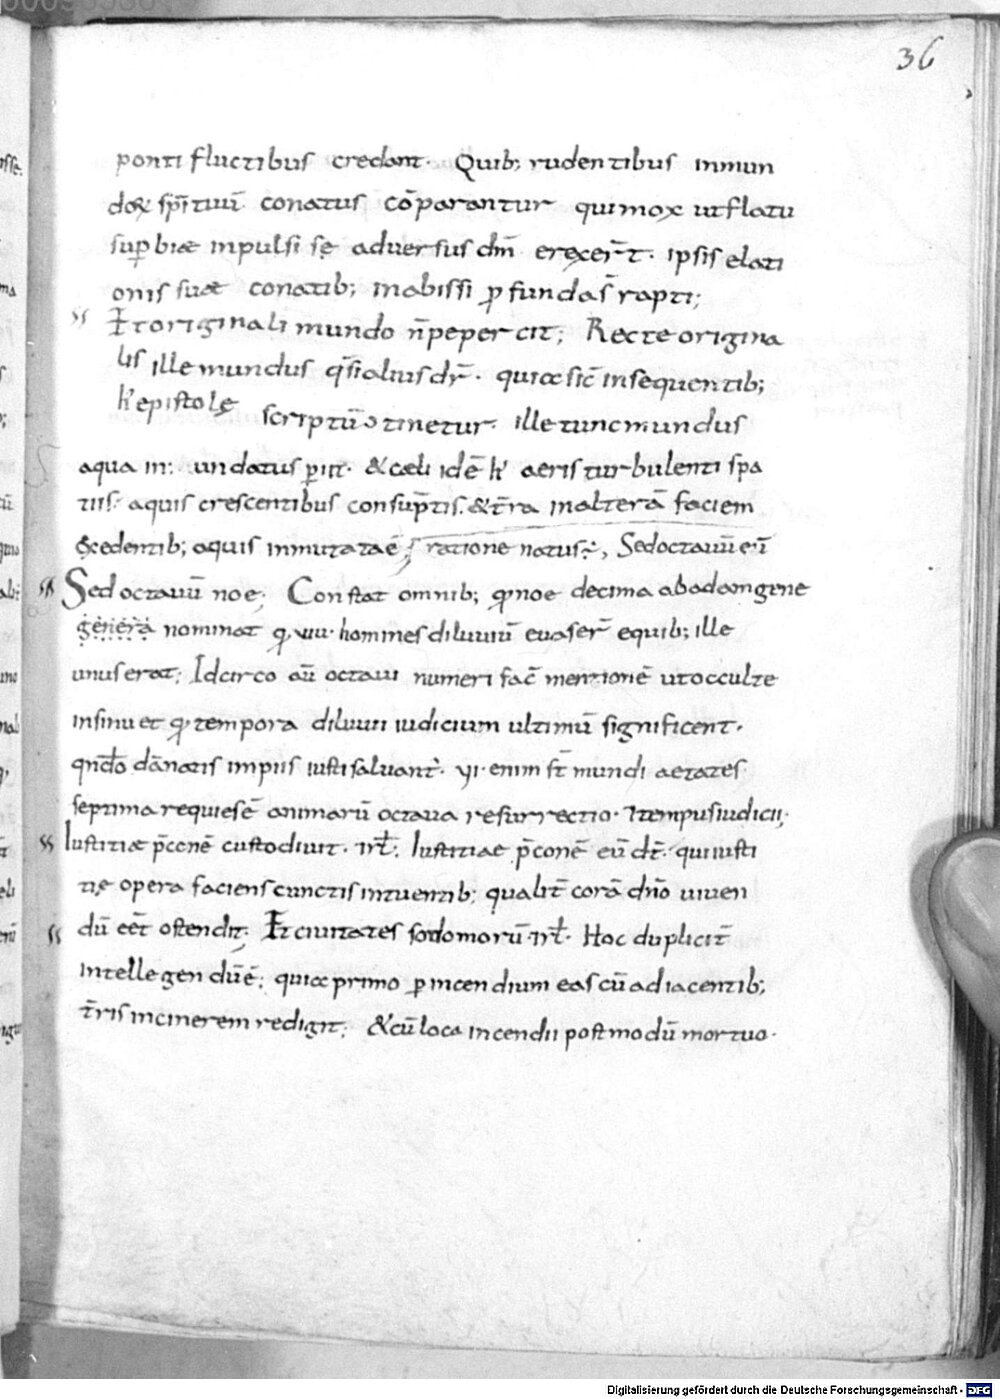 36
ponti fluctibus credant. Quib; rudentibus inmun
doꝝ sp̄ituū conatus cōparantur qui mox ut flatu
sup̱biae inpulsi se adversus dn̄m erexer̄t. ipsis elati
onis suae conatib; in abissi ꝓfundas̄ rapti;
Et originali mundo n̄ pepercit; Recte origina
lis ille mundus qͣsi alius dr̄. quia sic̄ in sequentib;
h' epistolę scriptū ↄtinetur. ille tunc mundus
aqua in: undatus p̱iit. & caeli idē h' aeris turbulenti spa
tiis: aquis crescentibus consup̄tis. & t̄ra in alterā faciem
excedentib; aquis inmutata ē; ratione natus:, Sed octauū
Sed octauū noe; Constat omnib; ꝙ noe decima ab adam gene
genera nominat ꝙ uiii. homines diluuiū euaser̄ e quib; ille
unus erat; Idcirco aū octaui numeri fac̄ mentionē ut occulte
insinuet ꝙ tempora diluuii iudicium ultimū significent.
qn̄do dānatis impiis iusti saluant̄. vi. enim st̄ mundi aetates
septima requies ē animarū octaua resurrectio. & tempus iudicii;
Iustitiae p̄conē custodiuit. ⁊rł. Iustitiae p̄conē eū dr̄. qui iusti
tię opera faciens cunctis intuentib; qualit̄ corā dn̄o uiuen
dū eēt ostendit; Et ciuitates sodomorū. ⁊rł. Hoc duplicit̄
intellegendū ē; quia primo p̱ incendium eas cū adiacentib;
t̄ris in cinerem redigit; & cū loca incendii postmodū mortuo.
Digitalisierung gefördert durch die Deutsche Forschungsgemeinschaft - DFG